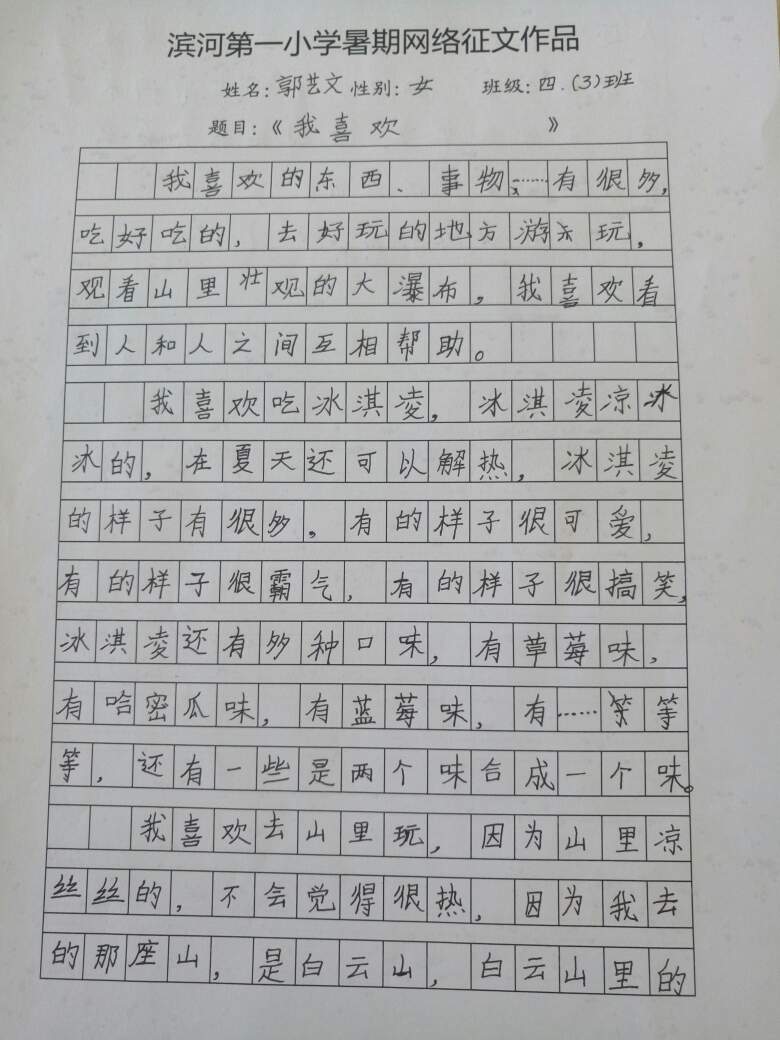 滨河第一小学暑期网络征文作品
姓名：郭艺文 性别：女 班级：四.(3)班
题目：《我喜欢 》
我喜欢的东西、事物，……有很多，
吃好吃的，去好玩的地方游乐玩，
观看山里壮观的大瀑布，我喜欢看
到人和人之间互相帮助。
我喜欢吃冰淇凌，冰淇凌凉冰
冰的，在夏天还可以解热，冰淇凌
的样子有很多，有的样子很可爱，
有的样子很霸气，有的样子很搞笑，
冰淇凌还有多种口味，有草莓味，
有哈密瓜味，有蓝莓味，有……等等
等，还有一些是两个味合成一个味。
我喜欢去山里玩，因为山里凉
丝丝的，不会觉得很热，因为我去
的那座山，是白云山，白云山里的